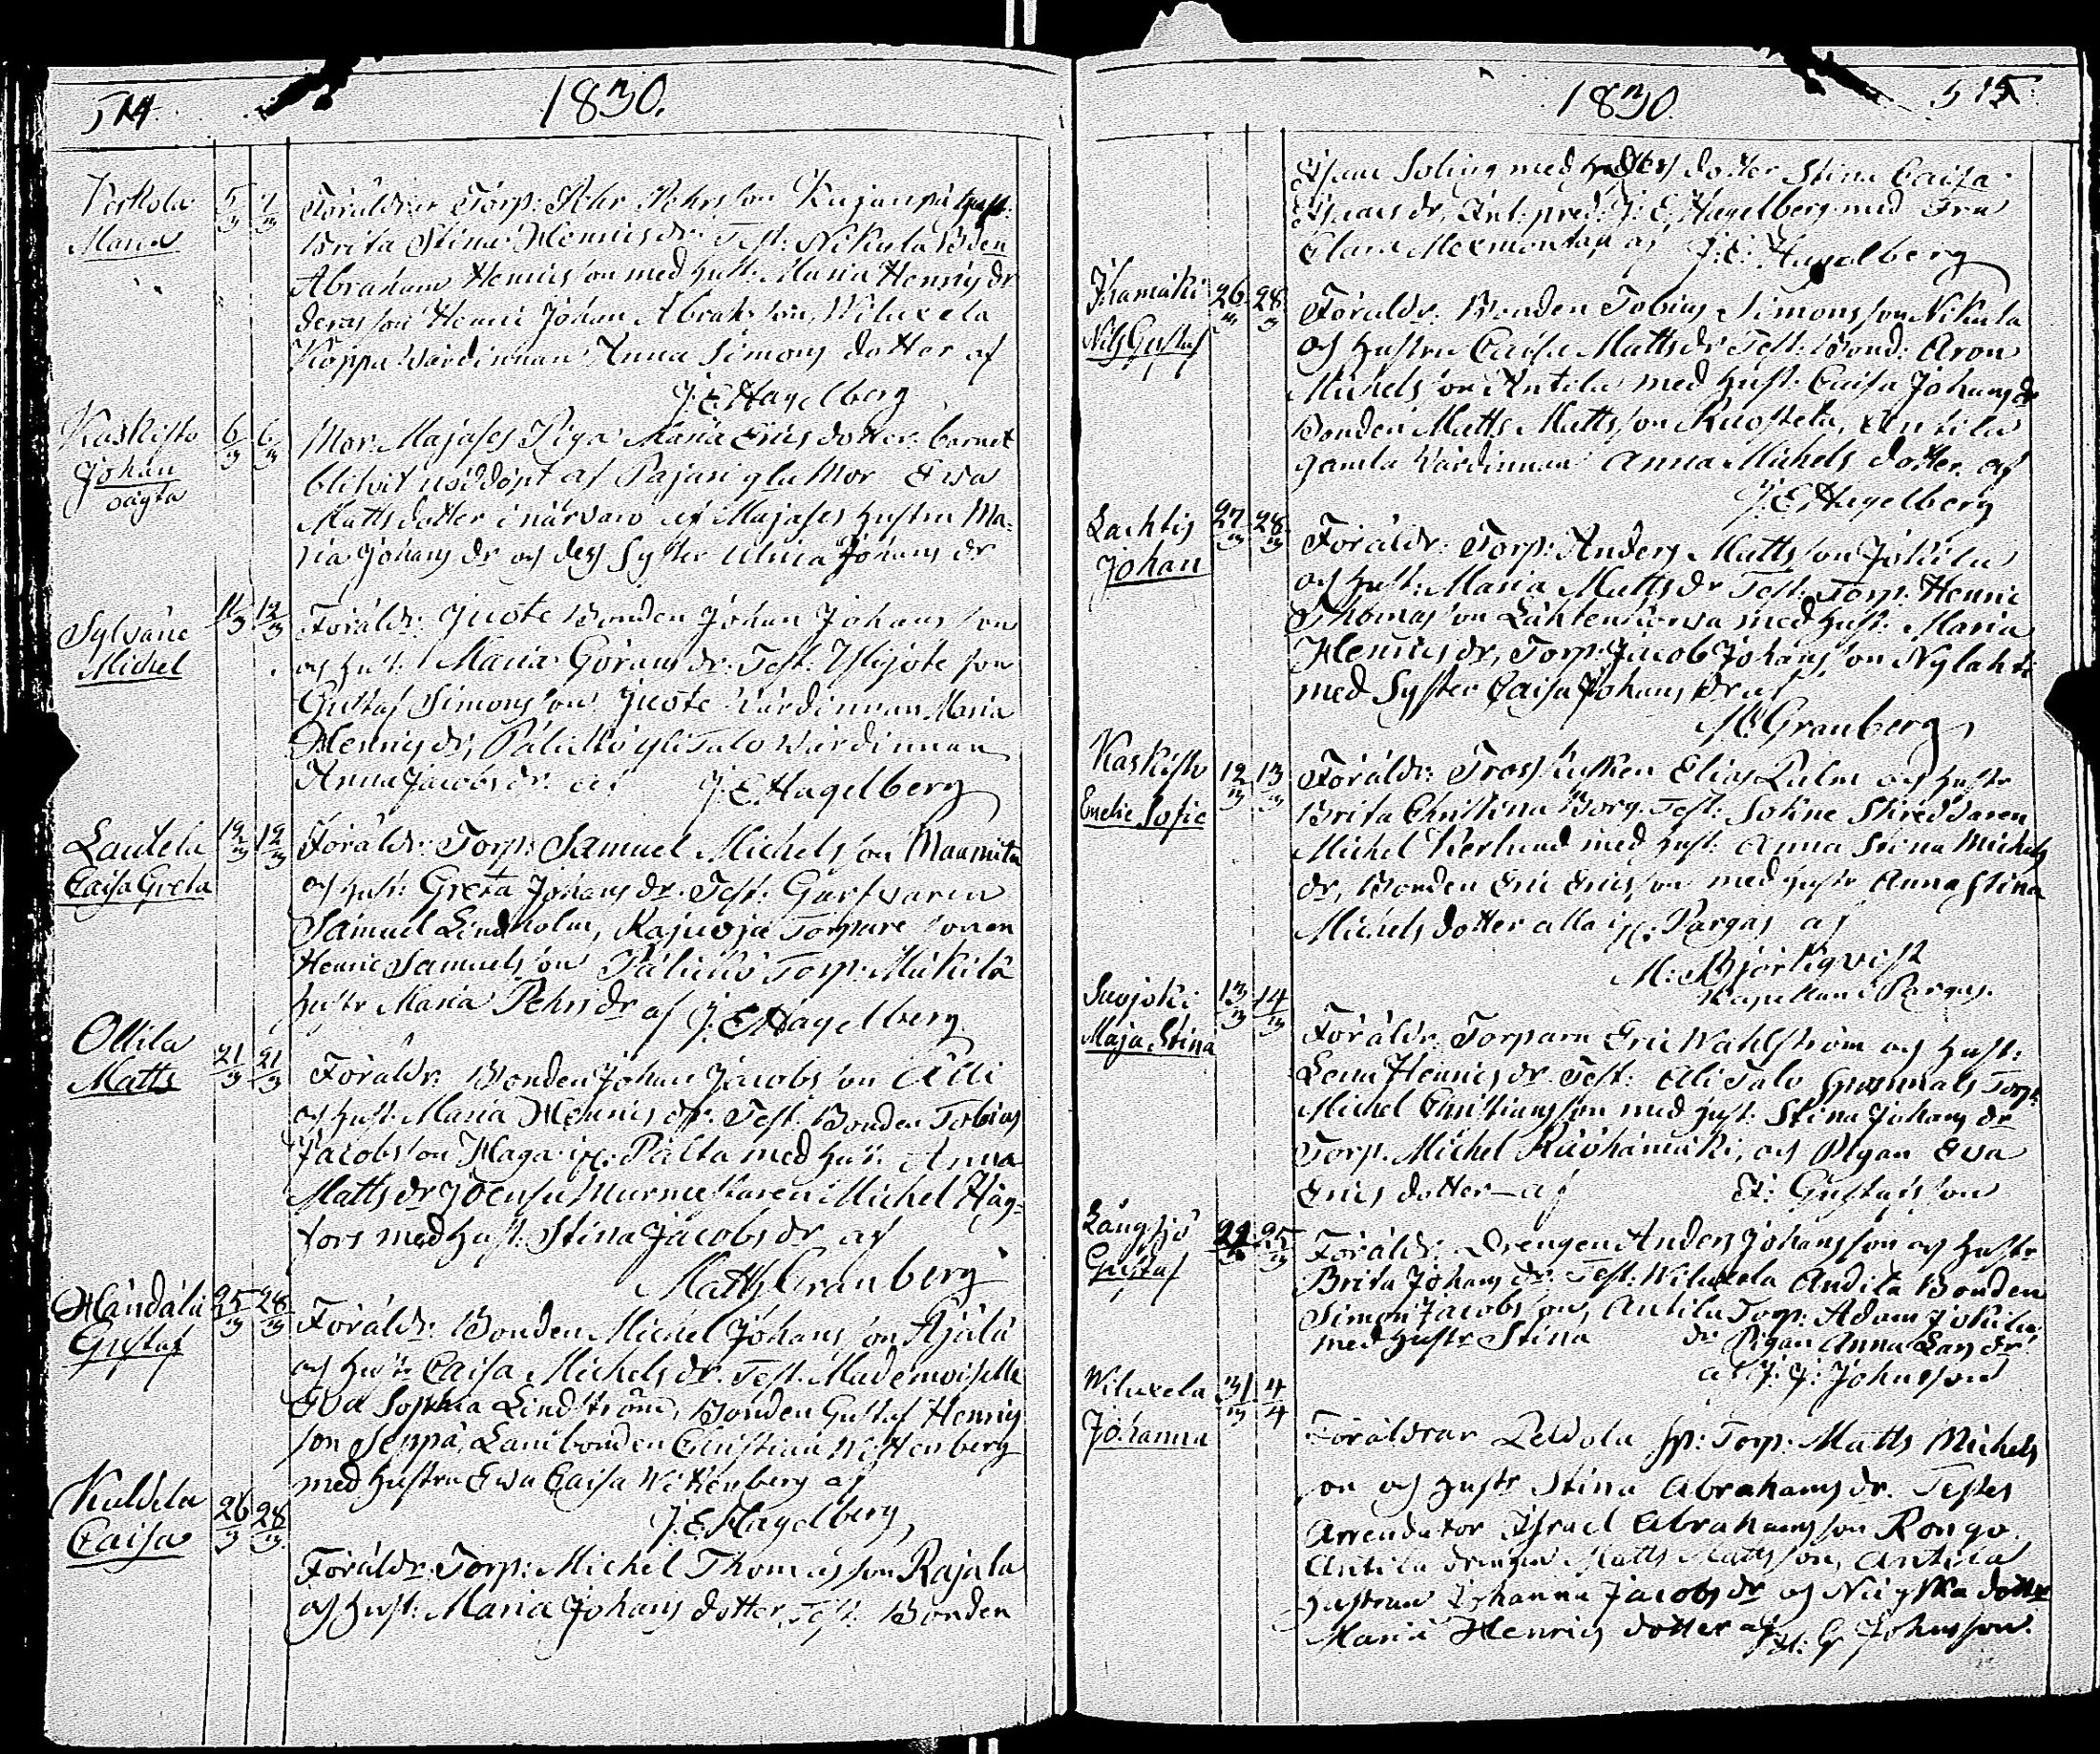 514
1830.
Verkola
Maria
5/3 7/3
Föräldrar Torp: Pehr Pehrsson Kujanpä hust:
Brita Stina Henricsdr. Test: Nikula Bden
Abraham Henricsson med hust: Maria Henrisdr
deras son Henric Johan Abrah:son, Wiluxela
Koppa Wärdinnan Anna Simons dotter af
J: E Hagelberg
Kaskisto
Johan
oägta
6/3 6/3
Mor: Majases Piga Maria Erics dotter. barnet
blifvit nöddöpt af Pajari gla Mor Ewa
Matts dotter i närvaro af Majases hustru Ma=
ria Johans dr och dess Syster Ulrica Johans dr
Sylväne
Michel
11/3 12/3
Föräldr: Juote Bonden Johan Johansson
och hust: Maria Görans dr. Test:
Gustaf Simonsson Juote Wärdinnan Maria
Henricsdr, Pälickö yli Talo Wärdinnan
Anna Jacobsdr. af J. E Hagelberg
Lautela
Caisa Greta
12/3 12/3
Föräldr: Torp: Samuel Michelsson Maamita
och hust: Greta Johansdr. Test: Garfvaren
Samuel Lindholm, Rajuoja Torpare sonen
Henric Samuelsson Pälickö Torp: Mikilä
hustr Maria Pehrsdr af J. E Hagelberg
Ollila
Matts
21/3 21/3
Föräldr: Bonden Johan Jacobsson Alli
och hust: Maria Henrics dr. Test: Bonden Tobias
Jacobsson Haga i St: Pälta med hust: Anna
Mattsdr Joensu Murmestaren Michel Häg=
fors med hust: Stina Jacobsdr af
Matths Granberg
Händälä
Gustaf
25/3 28/3
Föräldr: Bonden Michel Johansson Äjälä
och hust: Caisa Michelsdr. Test: Mademoiselle
Eva Sophia Lindström, Bonden Gustaf Henrics
son Seppä, Lanibonden Christian Wittenberg
med hustru Ewa Caisa Wittenberg af
J. E. Hagelberg
Kuldela
Caisa
26/3 28/3
Föräldr: Torp: Michel Thomasson Rajala
och hust: Maria Johans dotter, Test: Bonden
1830.
515
Soling med dotter Stina Caisa
Isaacsdr, Ant: pred: J: E: Hagelberg med Fru
Clara Mexmontan af J: E: Hagelberg
Ihamäki
Nils Gustaf
26/3 28/3
Föräldr: Bonden Tobias Simonsson Nikula
och hustru Caisa Mattsdr Test: Bond: Aron
Michelsson Antila med hust: Caisa Johansdr
Bonden Matts Mattsson Ruostela, Antila
gamla Wärdinnan Anna Michels dotter af
J. E Hagelberg
Lachtis
Johan
27/3 28/3
Föräldr: Torp: Anders Mattsson Jokila
och hust: Maria Mattsdr Test: Torp: Henric
Thomasson Lähtenkorva med hust: Maria
Henricsdr, Torp: Jacob Johansson Nylahti
med Syster Caisa Johans dr af
M Granberg
Kaskisto
Emelie Sofie
12/3 13/3
Föräldr: Tross kusken Elias Palm och hustr
Brita Christina Borg. Test: Sokne Skreddaren
Michel Kerlund med hust: Anna Stina Michels
dr, Bonden Eric Ericsson med hustr Anna Stina
Michels dotter alla i Pargas af
M: Björkqvist
Kapellan i Pargas.
Suojoki
Maja Stina
13/3 14/3
Föräldr. Torparn Eric Wahlström och hust:
Lena Henricsdr. Test: Alli Talo Torp:
Michel Christiansson med hust: Stina Johansdr
Torp. Michel och Pigan Ewa
Erics dotter af A: Gustafsson
Långsjö
Gustaf
24/3 25/3
Föräldr. Drengen Anders Johansson och hustr
Brita Johansdr. Test: Wiluxela Andila Bonden
Simon Jacobsson, Antila Torp: Adam Jokila
med hustr Stina dr Pigan Anna Larsdr
af J. G: Johnsson
Wiluxela
Johanna
31/3 4/4
Föräldrar Torp: Matts Michels
son och hustr Stina Abrahamsdr. Testes
Arrendator Israel Abrahamsson Rongo.
Antila drengen Matts Mattsson, Antila
hustrun Johanna Jacobsdr och dotter
Maria Henrics dotter af G Johnsson.